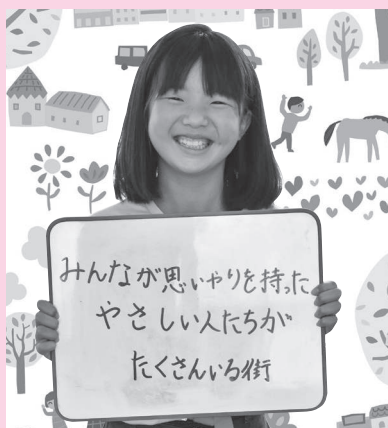 みんなが思いやりを持った
やさしい人たちが
たくさんいる街